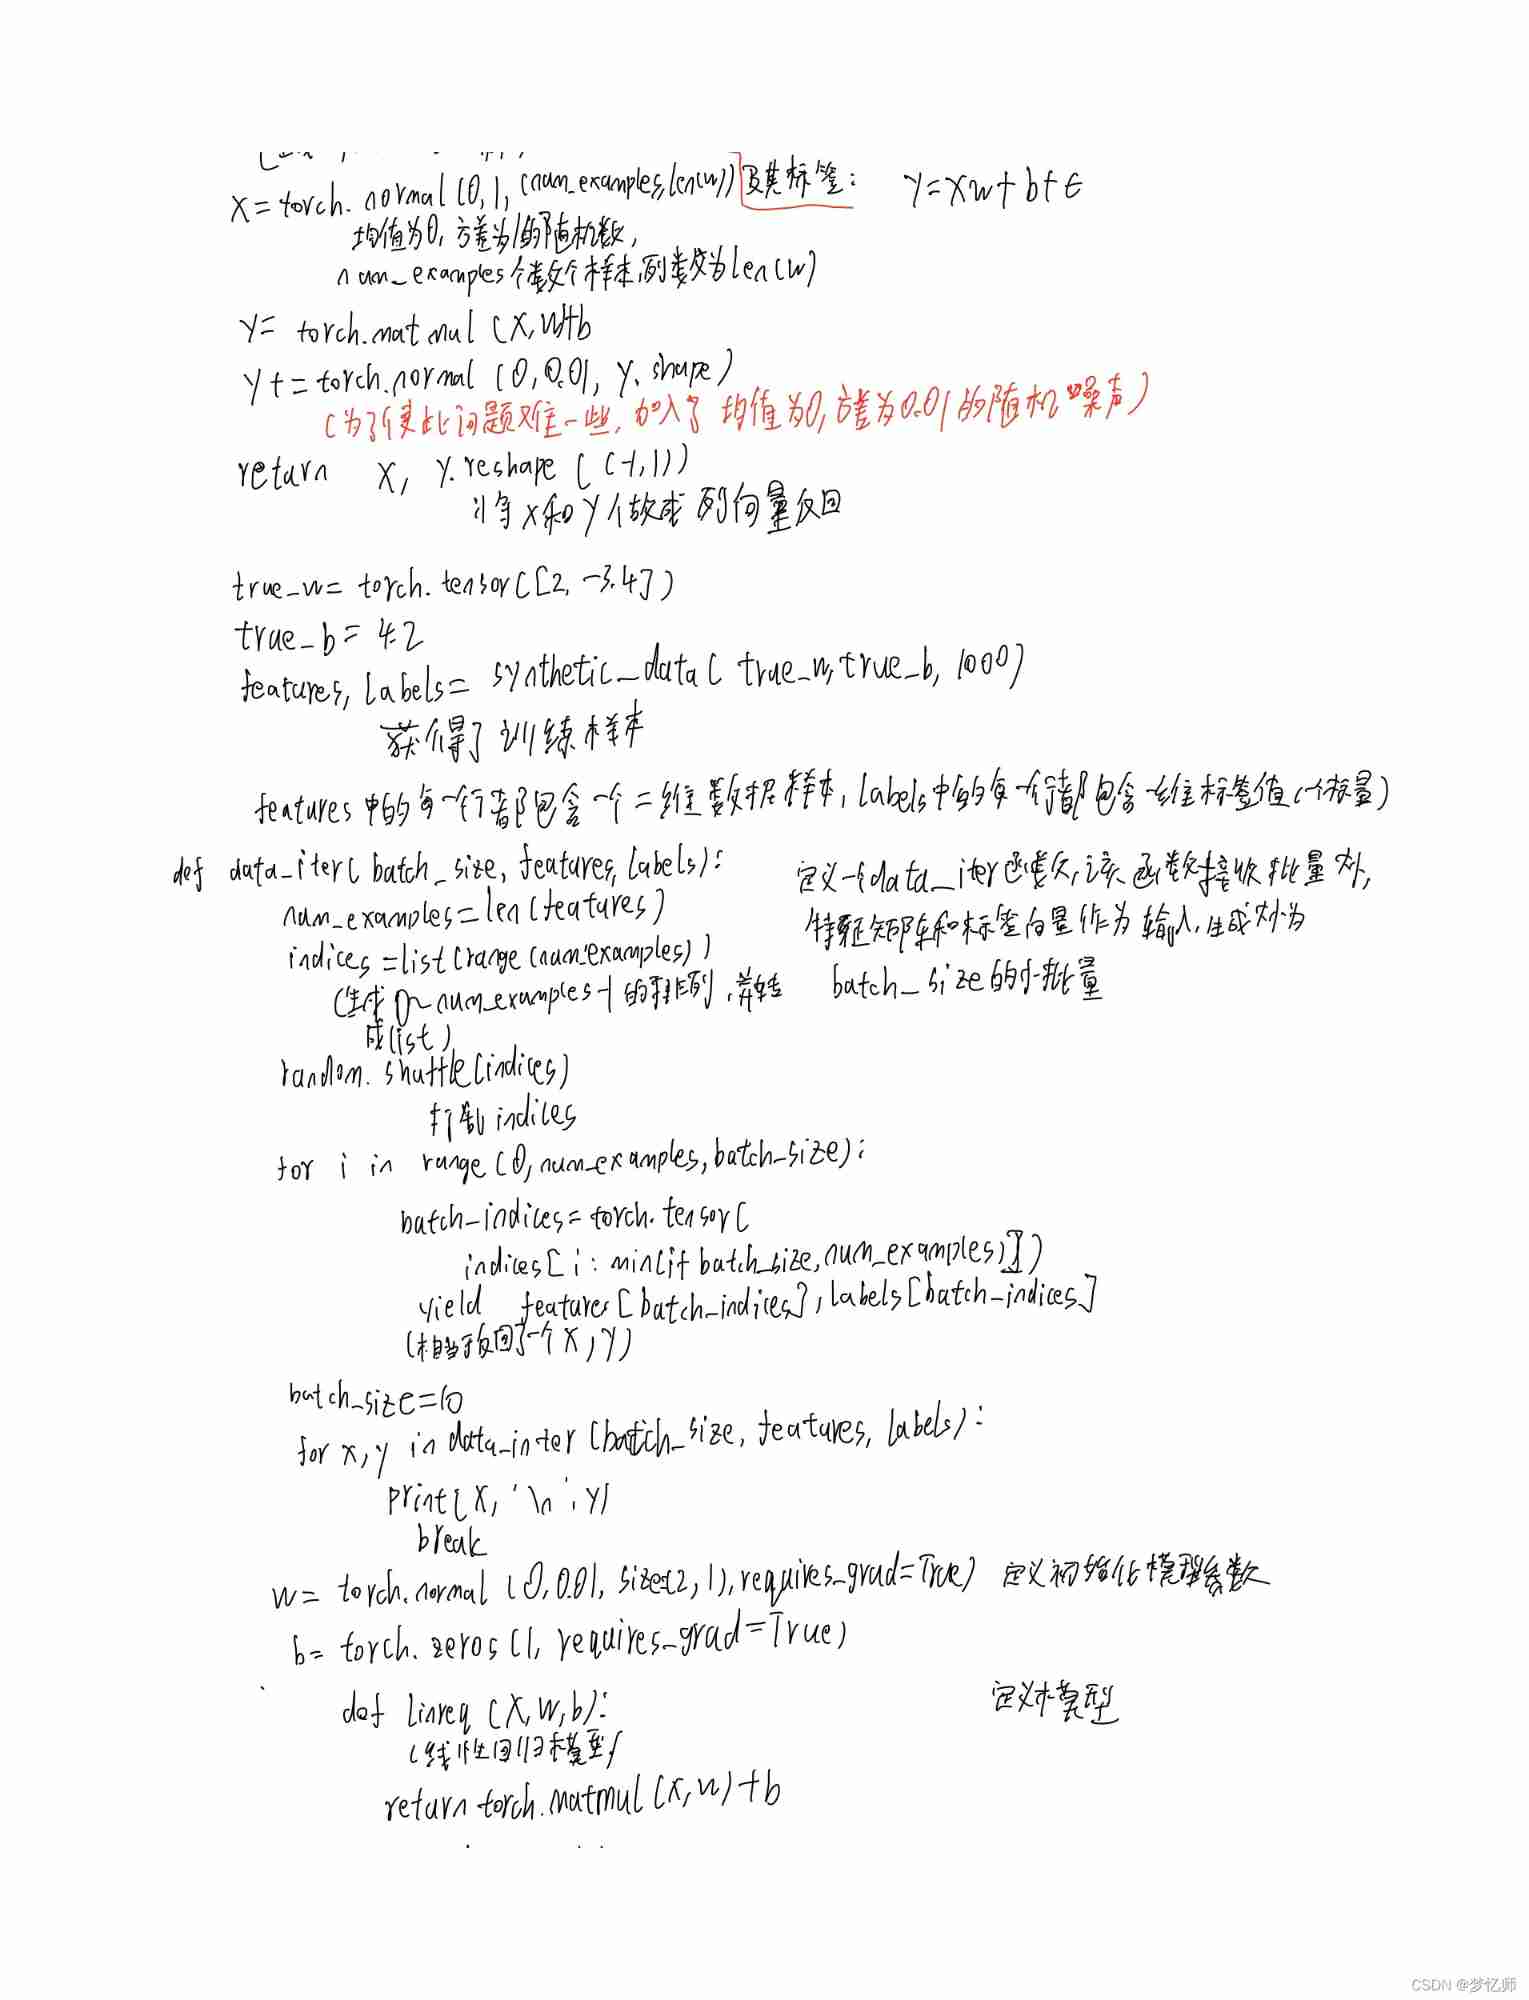 X=torch.normal(0,1,(num_examples,len(w))及其标签: y=Xw+b+ϵ
均值为0,方差为1的随机数,
num_examples个数个样本,列数为len(w)
y= torch.matmul(X,w)+b
y+=torch.normal(0,0.01,y.shape)
(为了使此问题难一些,加入了均值为0,方差为0.01的随机噪声)
return X, y.reshape((-1,1))
将X和y做成列向量返回
true_w= torch.tensor([2,-3.4])
true_b=4.2
features,labels= synthetic_data(true_w,true_b,1000)
获得了训练样本
features中的每一行都包含一个二维数据样本,labels中的每一行都包含一维标签值(一个标量)
def data_iter(batch_size,features,labels): 定义一个data_iter函数,该函数接收批量大小,
num_examples=len(features)
特征矩阵和标签向量作为输入,生成大小为
indices=list(range(num_examples))
(生成0~num_examples-1的排列,并转 batch_size的小批量
成list)
random.shuffle(indices)
打乱indices
for i in range(0,num_examples,batch_size):
batch_indices=torch.tensor(
indices[i:min(i+batch_size,num_examples)])
yield features[batch_indices],labels[batch_indices]
(相当于返回了一个X,y)
batch_size=10
for x,y in data_inter(batch_size,features,labels):
print(X,'\n',y)
break
w= torch.normal(0,0.01,size=(2,1),requires_grad=True) 定义初始化模型参数
b= torch.zeros(1,requires_grad=True)
def linreq(X,w,b): 定义模型
(线性回归模型)
return torch.matmul(X,w)+b
CSDN @梦忆师